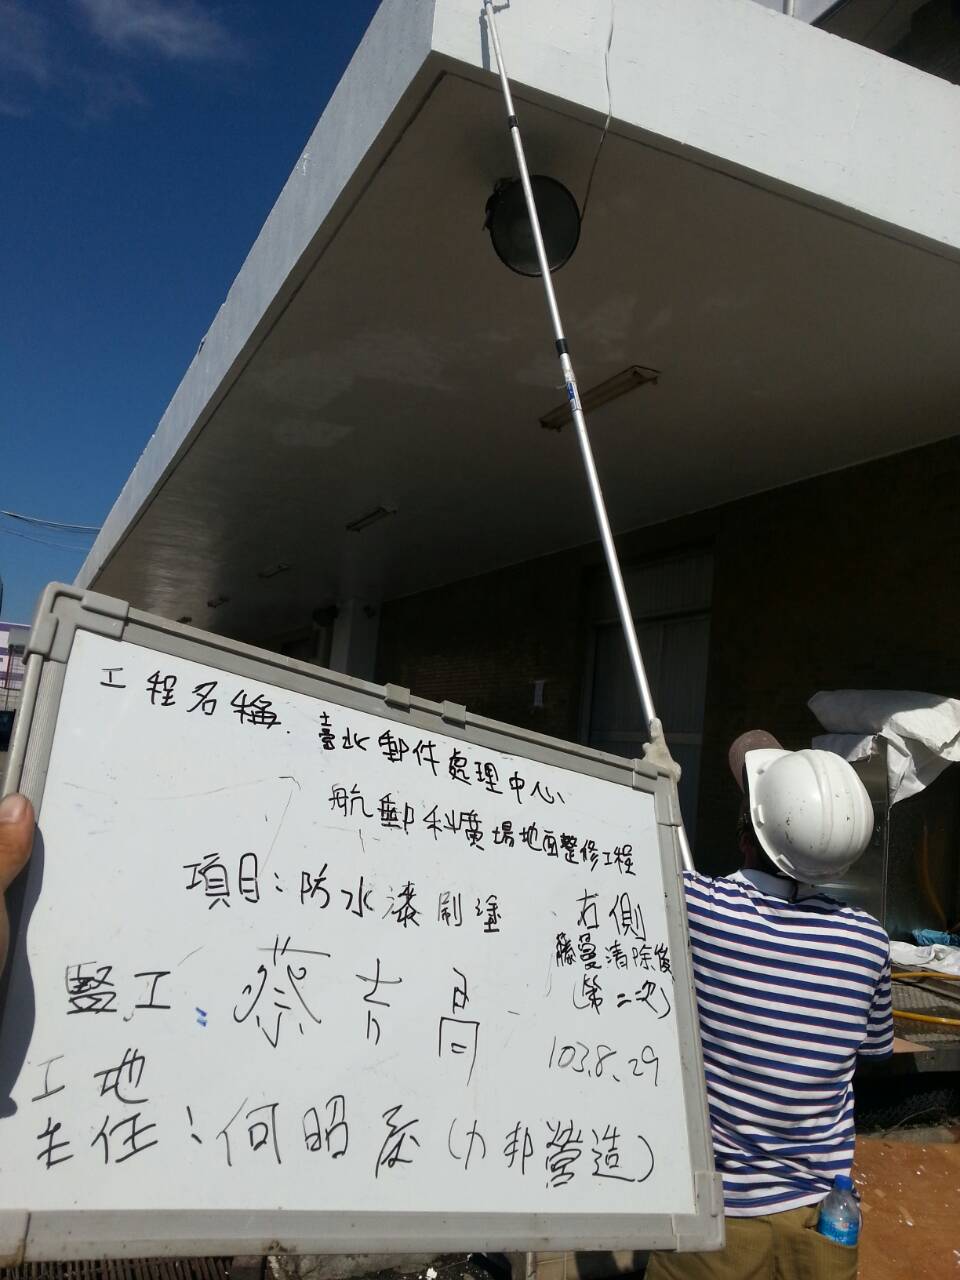 工程名稱：臺北郵件處理中心
航郵科廣場地面整修工程
項目：防水漆刷塗
右側
藤蔓清除後
(第二次)
監工：蔡
103.8.29
工地
主任：何昭(力邦營造)